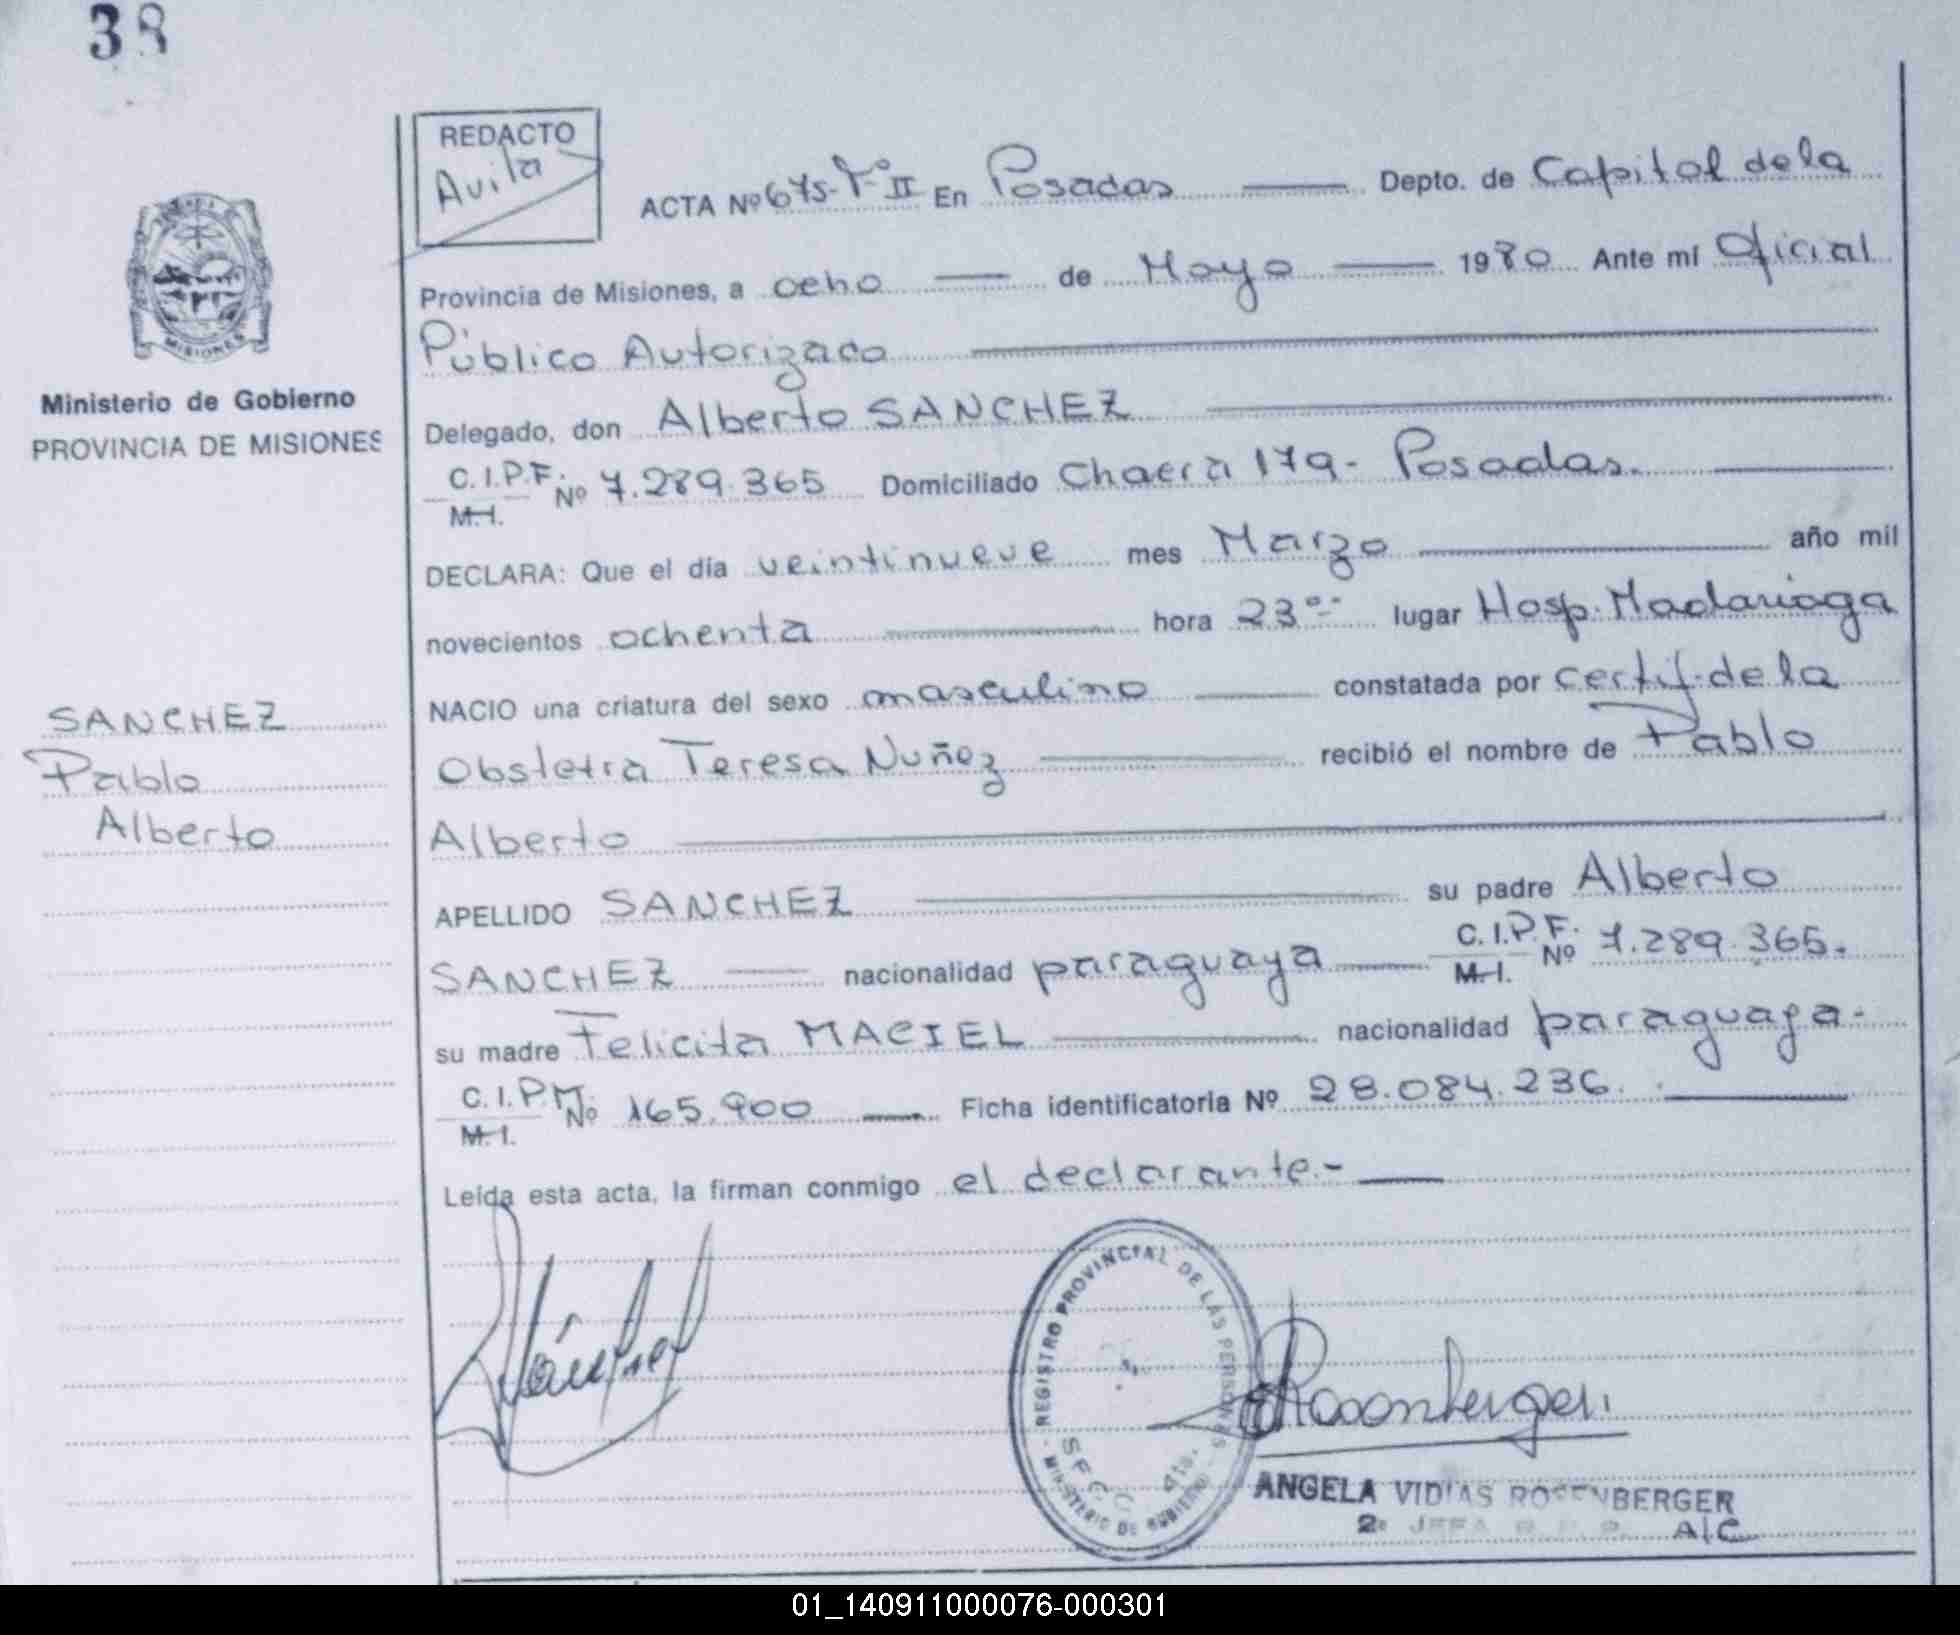 38
REDACTO
Avila
ACTA Nº 675-Tº II En Posadas Depto. de Capital de la
Provincia de Misiones, a ocho de Mayo 1980 Ante mí Oficial
Público Autorizado
Delegado, don Alberto SANCHEZ
C.I.P.F. Nº 7.289.365 Domiciliado Chacra 179- Posadas.
M.I.
DECLARA: Que el día veintinueve mes Marzo año mil
novecientos ochenta hora 23 lugar Hosp. Madariaga
NACIO una criatura del sexo masculino constatada por certif. de la
Obstetra Teresa Nuñez recibió el nombre de Pablo
Alberto
APELLIDO SANCHEZ su padre Alberto
SANCHEZ nacionalidad paraguaya C.I.P.F. Nº 7.289.365.
M.I.
su madre Felicita MACIEL nacionalidad paraguaya-
C.I.P.M. Nº 165.900 Ficha identificatoria Nº 28.084.236.
M.I.
Leída esta acta, la firman conmigo el declarante.-
MISIONES
Ministerio de Gobierno
PROVINCIA DE MISIONES
SANCHEZ
Pablo
Alberto
Sánchez
REGISTRO PROVINCIAL DE LAS PERSONAS
MINISTERIO DE GOBIERNO
Rosenberger
ANGELA VIDIAS ROSENBERGER
2º JEFA R.P.P. A/C
01_140911000076-000301